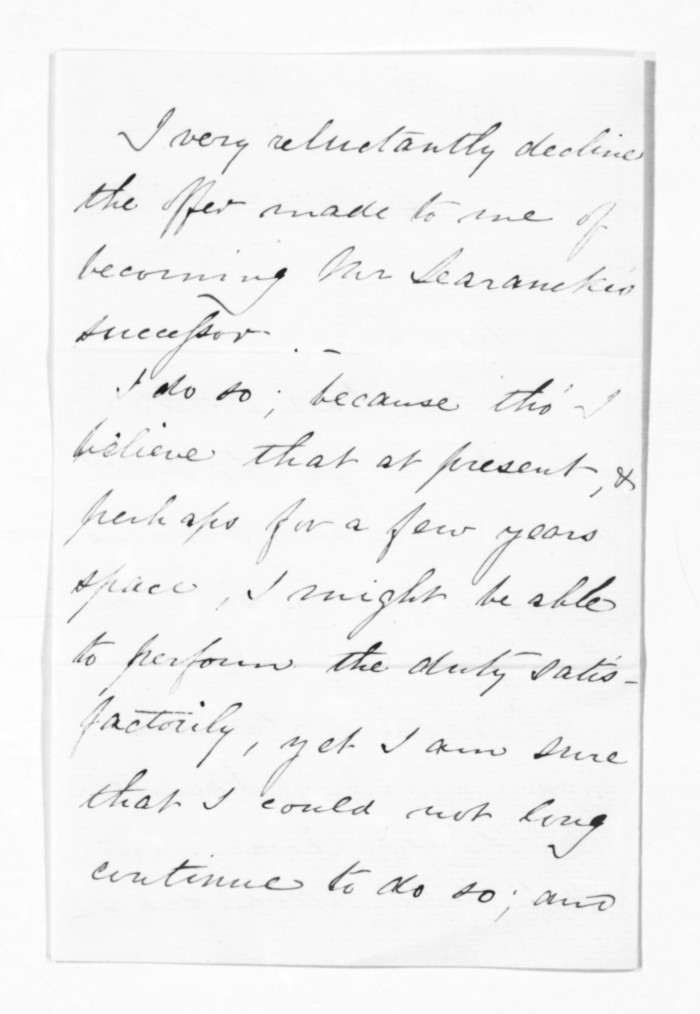 I very reluctantly decline
the offer made to me of
becoming Mr
successor. –
I do so; because tho' I
believe that at present, &
perhaps for a few years
space, I might be able
to perform the duty satis-
factorily, yet I am sure
that I could not long
continue to do so; and